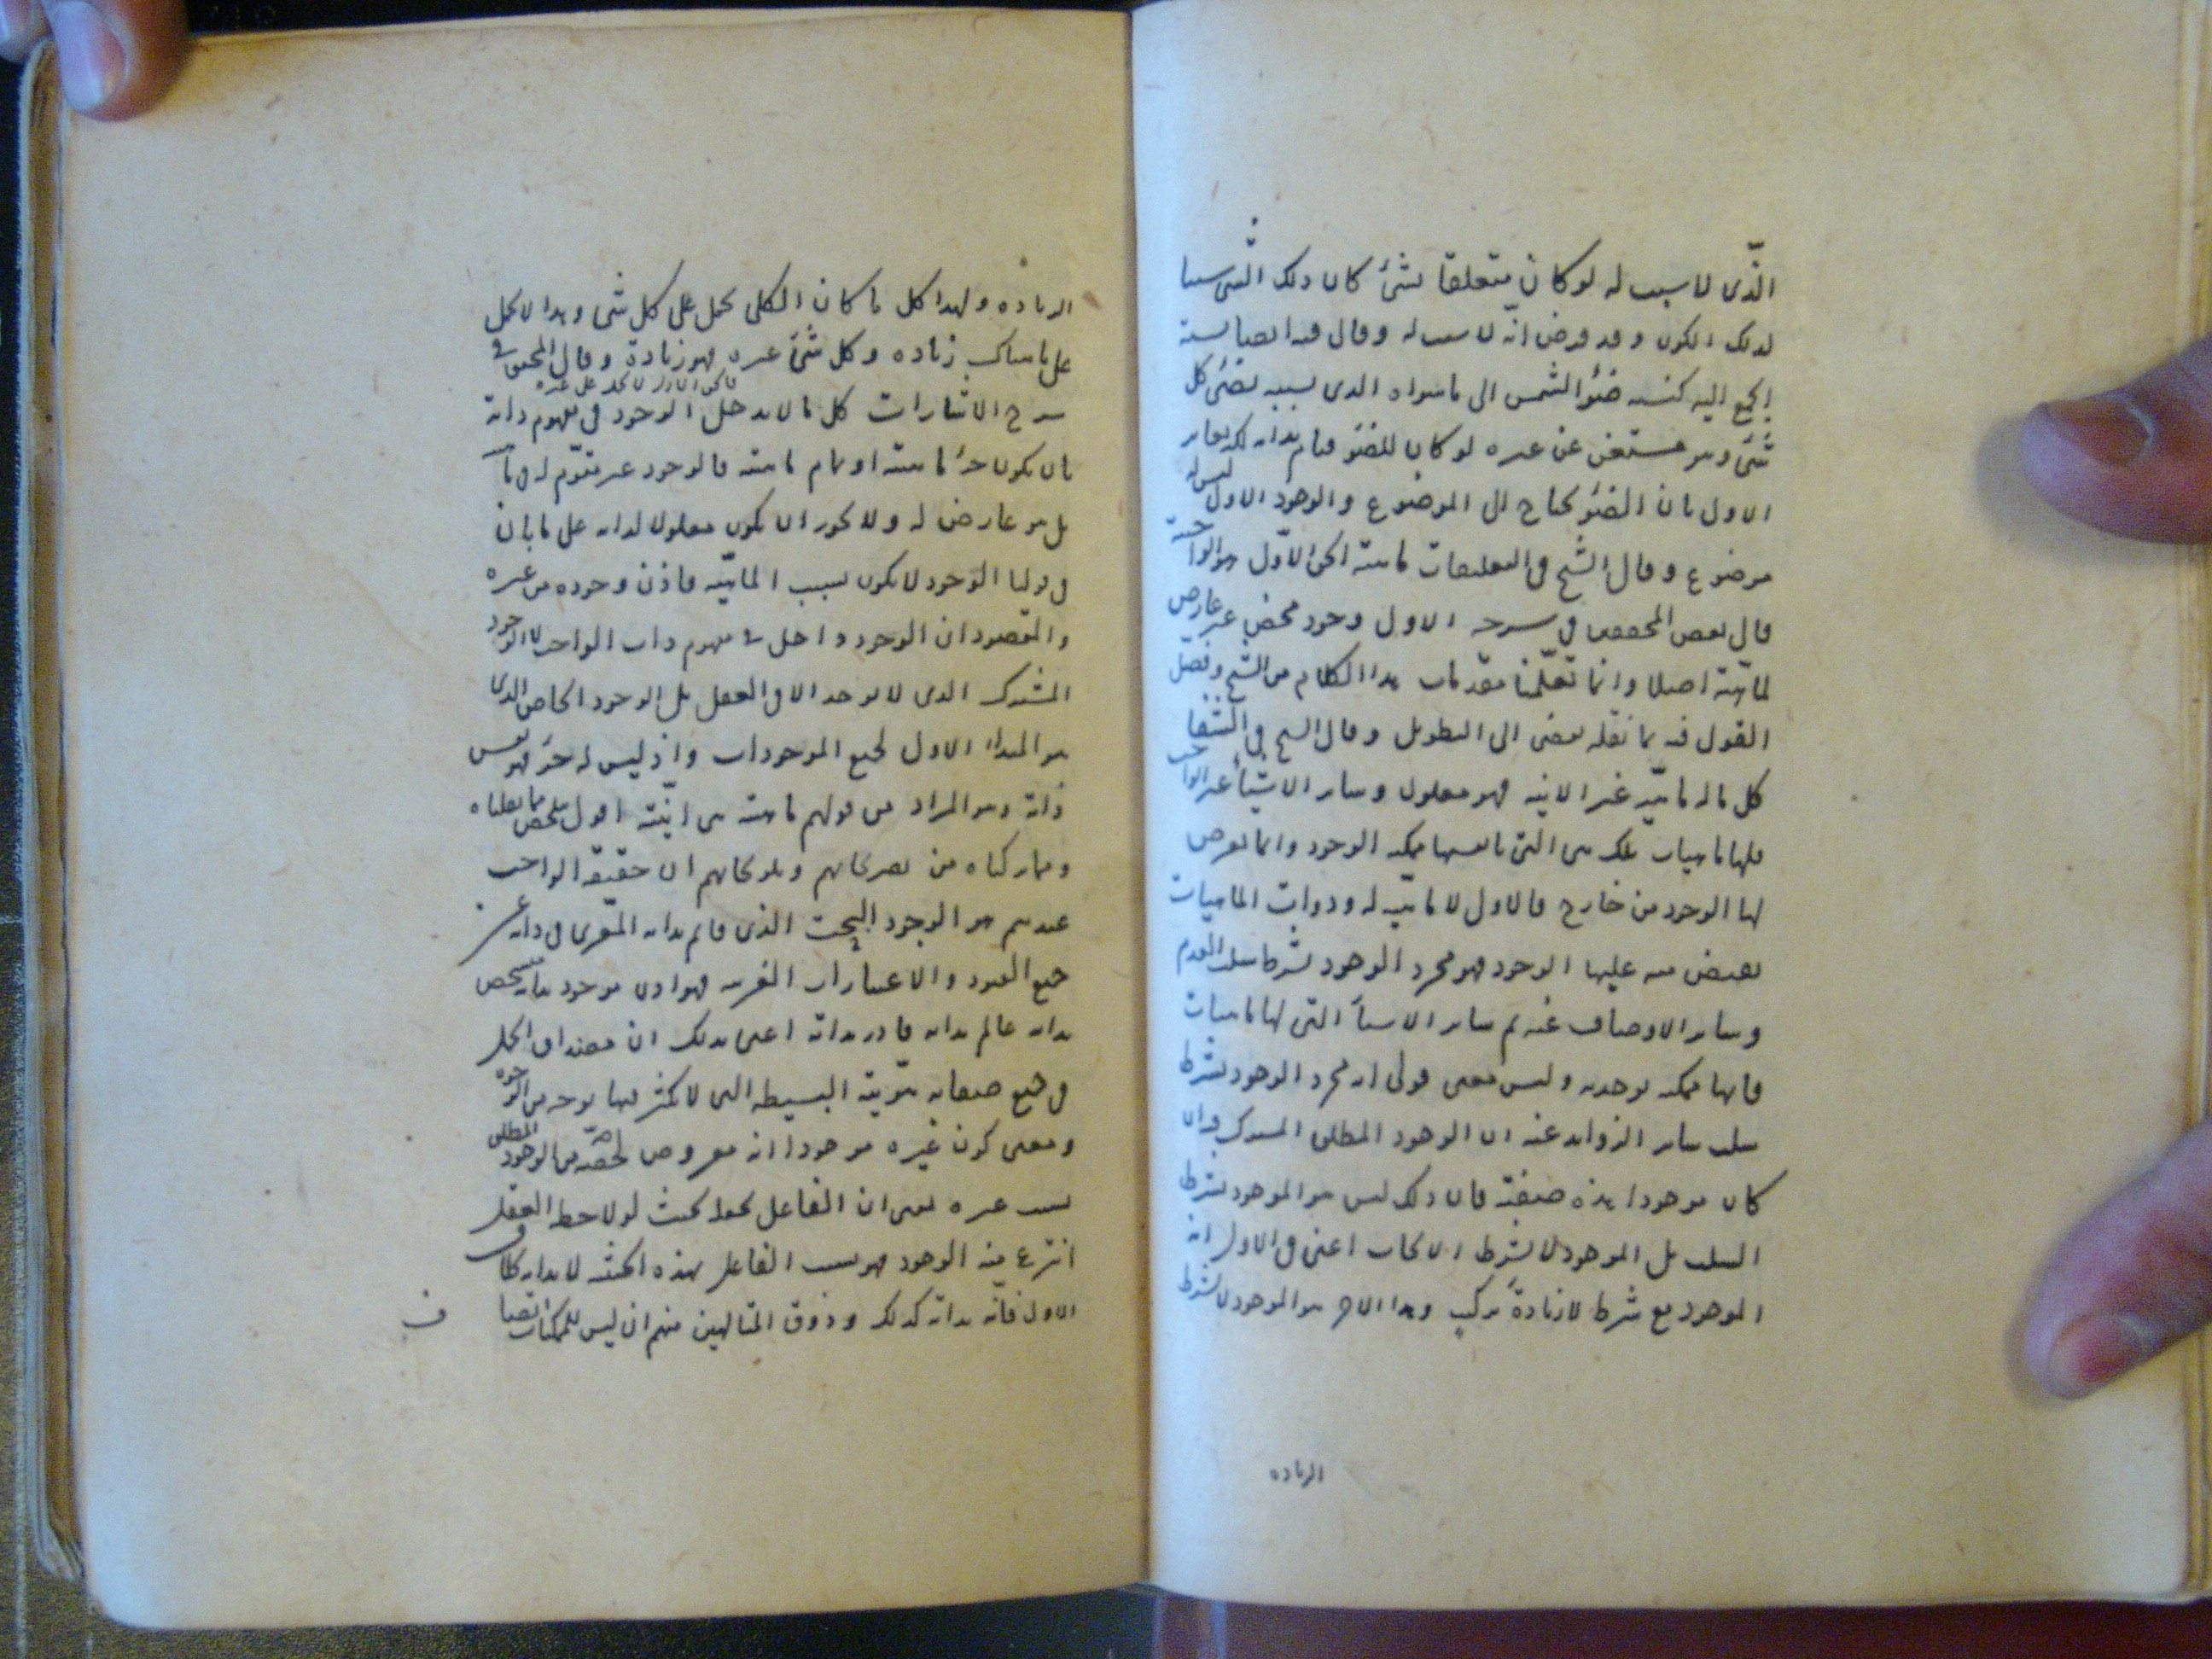 الذّى لا سبب له لو كان متعلقا بشئ كان ذلك الشئ سببا
لذلك الكون و قد فرض انه لا سبب له وقال فيه ايضا نسبة
الجميع اليه كنسبة ضوء الشمس الى ما سواه الذى بسببه يضئ كل
شئ وهو مستغن عن غيره لو كان للضوء قيام بذاته لكنه يغاير
الاول بان الضوء يحتاج الى الموضوع والوجود الاول ليس له
موضوع وقال الشيخ فى التعليقات ماهية الحق الاول هو الواجبية
قال بعض المحققين فى شرحه الاول وجود محض غير عارض
لماهيّة اصلا وانما تعلّمنا مقدمات هذا الكلام من الشيخ وفصّل
القول فيه بما نقله يفضى الى التطويل وقال الشيخ فى الشفا
كل ما له ماهيّة غير الانية فهو معلول وساير الاشياء غير الواجب
فلها ماهيات تلك هى التى بانفسها ممكنة الوجود وانما يعرض
لها الوجود من خارج فالاول لا ماهيّة له وذوات الماهيات
يفيض منه عليها الوجود فهو مجرد الوجود بشرط سلب العدم
وساير الاوصاف عنه ثم ساير الاشياء التى لها ماهيات
فانها ممكنة توجد به وليس معنى قولى انه مجرد الوجود بشرط
سلب ساير الزوايد عنه ان الوجود المطلق المشترك فيه ان
كان موجودا هذه صفته فان ذلك ليس هو الموجود بشرط
السلب بل الموجود لا بشرط الايجاب اعنى فى الاول انه
الموجود مع شرط لا زيادة تركيب وهذا الاخر هو الموجود لا بشرط
الزياده
الزياده ولهذا كل ما كان الكلى يحمل على كل شئ وهذا لا يحمل
على ما هناك زياده وكل شئ غيره فهو زيادة وقال المحقق فى
شرح الاشارات كل ما لا يدخل الوجود فى مفهوم ذاته
بان يكون جزء ماهيته او تمام ماهيته فالوجود غير مقوّم له فى ماهيته
بل هو عارض له ولا يجوز ان يكون معلولا لذاته على ما بان
فى قولنا الوجود لا يكون بسبب الماهيّة فاذن وجوده من غيره
والمقصود ان الوجود داخل فى مفهوم ذات الواجب لا الوجود
المشترك الذى لا يوجد الا فى العقل بل الوجود الخاص الذى
هو المبدا الاول لجميع الموجودات واذ ليس له جزء فهو نفس
ذاته وهو المراد من قولهم ماهيته هى انيّته اقول ملخص ما نقلناه
ومما تركناه من تصريحاتهم وتلويحاتهم ان حقيقة الواجب
عندهم هو الوجود البحت الذى قائم بذاته المعرى فى ذاته عن
جميع القيود والاعتبارات الغريبة فهو اذن موجود بذاته متشخص
بذاته عالم بذاته قادر بذاته اعنى بذلك ان مصداق الحمل
فى جميع صفاته هويّته البسيطه التى لا تكثر فيها بوجه من الوجوه
ومعنى كون غيره موجودا انه معروض لحصّة من الوجود المطلق
بسبب غيره بمعنى ان الفاعل يجعله بحيث لو لاحظه العقل
انتزع منه الوجود فهو بسبب الفاعل بهذه الحيثية لا بذاته بخلاف
الاول فانّه بذاته كذلك وذوق المتالهين منهم ان ليس للممكنات اتصاف